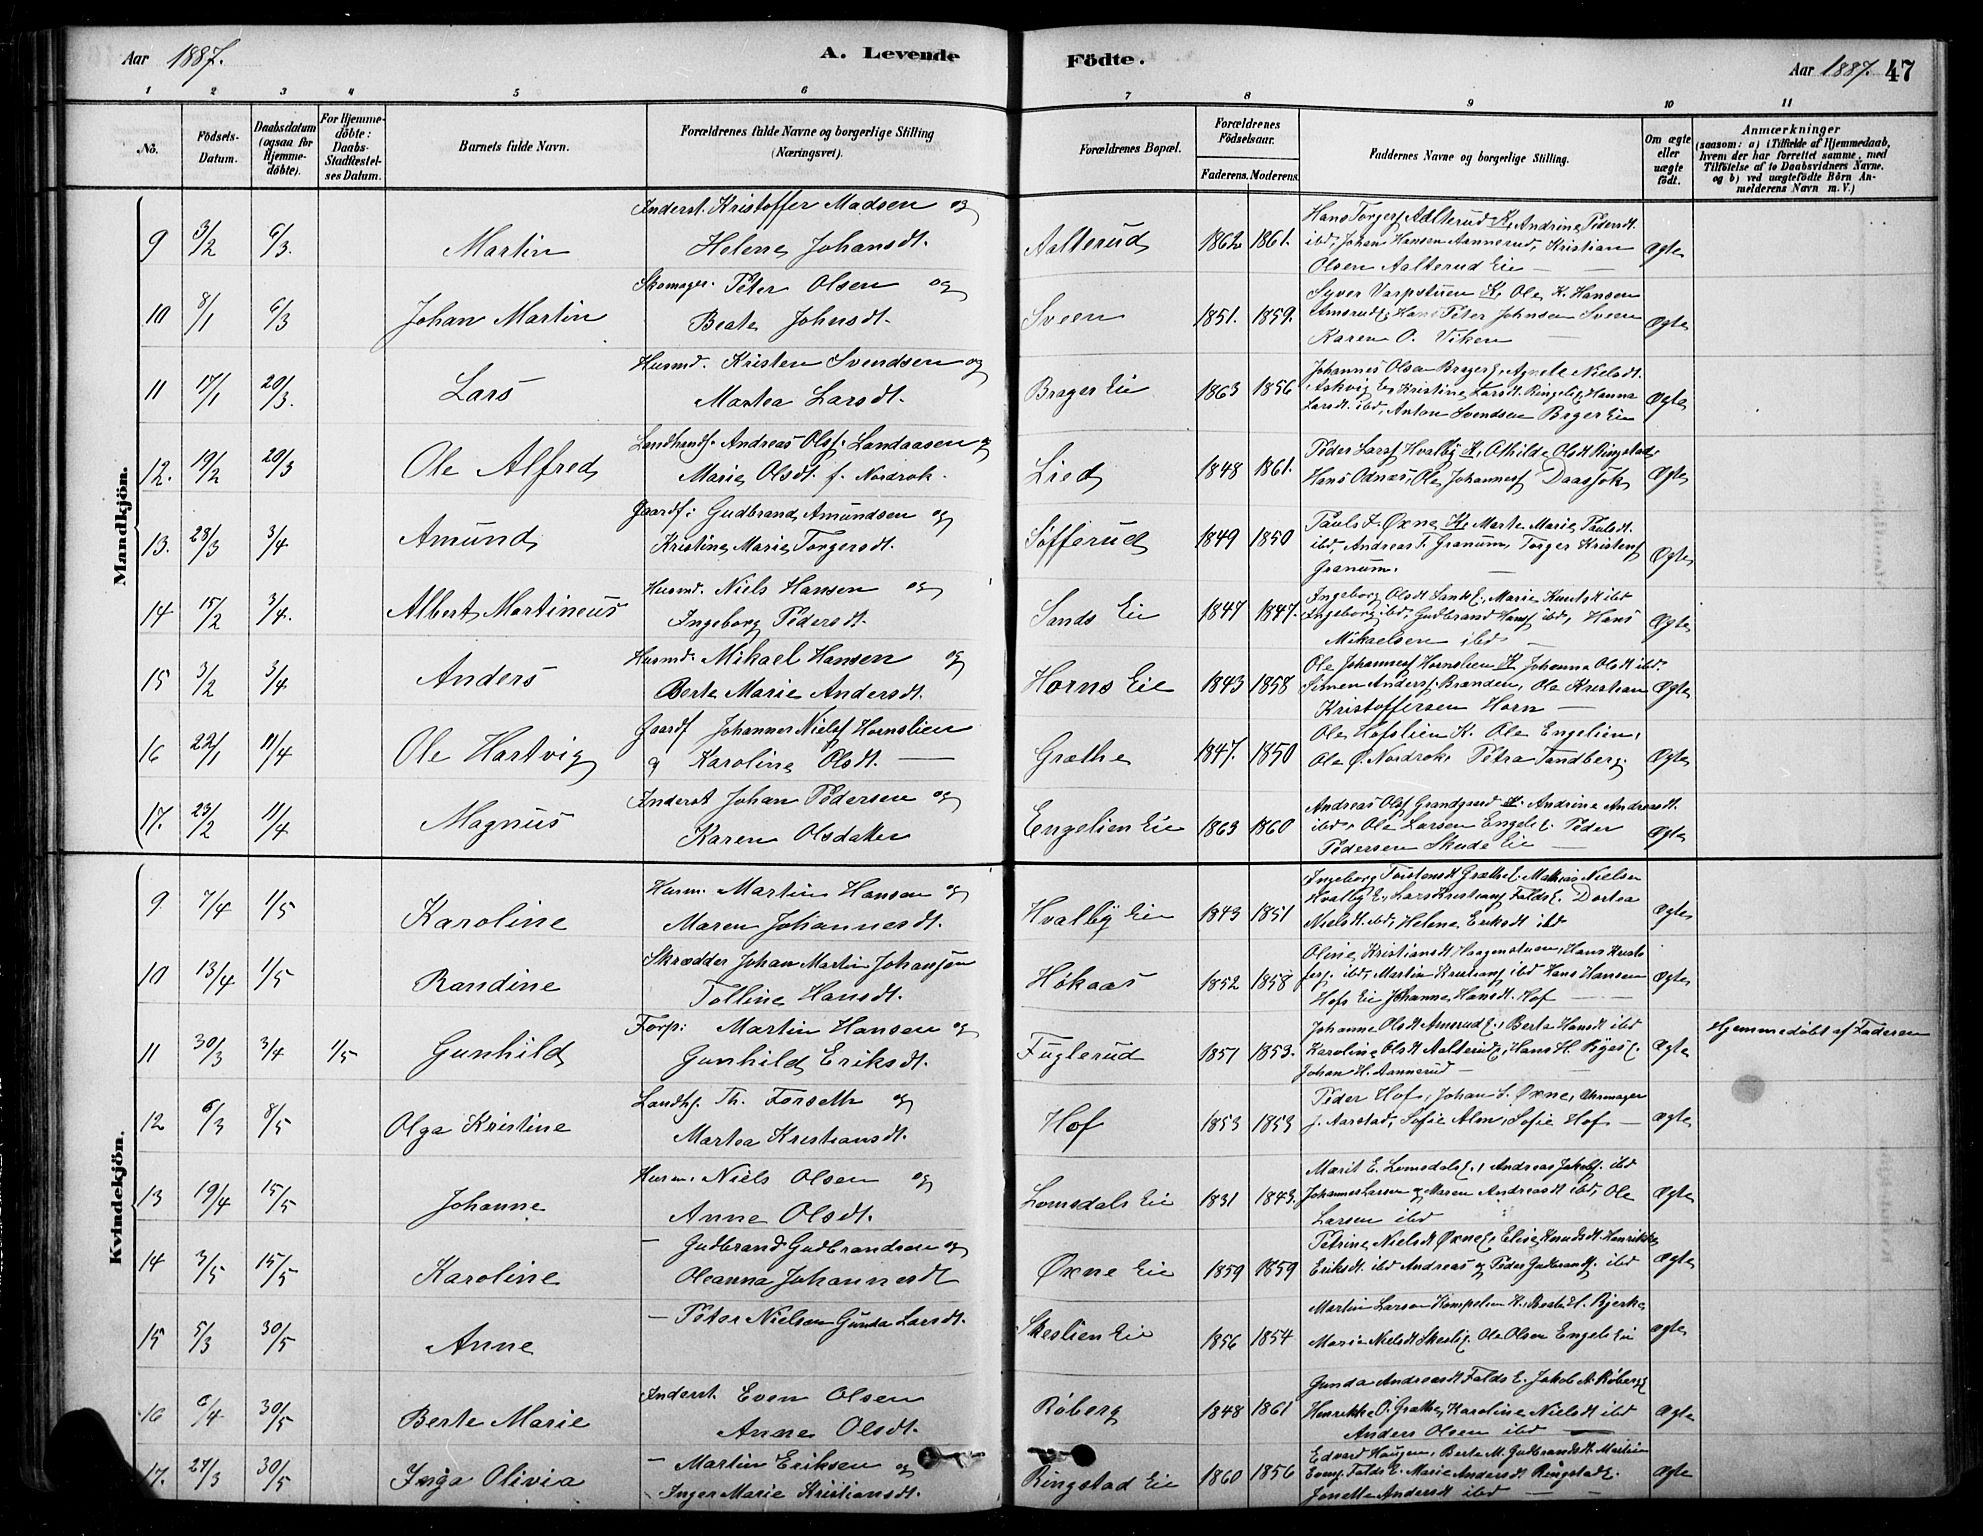 Aar 1887.
A. Levende
Födte.
Aar 1887. 47
1 2 3 4 5 6
7 8 9 10 11
No.
Födsels-Datum.
Daabsdatum (ogsaa for Hjemme-döbte).
For Hjemme-döbte: Daabs-Stadfæstel-ses Datum.
Barnets fulde Navn.
Forældrenes fulde Navne og borgerlige Stilling (Næringsvei).
Forældrenes Bopæl.
Forældrenes Födselsaar.
Faderens. Moderens.
Faddernes Navne og borgerlige Stilling.
Om ægte eller uægte födt.
Anmærkninger
(saasom: a) i Tilfælde af Hjemmedaab, hvem der har forrettet samme, med Tilföielse af to Daabsvidners Navne. og b) ved uægtefödte Börn An-melderens Navn m. V.)
Mandkjön.
9 3/2 6/3. Martin
Inderst. Kristoffer Madsen og
Helene Johansdt.
Aalterud 1862 1861.
Hans Torgersf Aalterud K, Andrine Pedersdt.
ibd, Johan Hansen Aannerud, Kristian
Olsen Aalterud Eie
Ægte
10 8/1 6/3 Johan Martin
Skomager. Peter Olsen og
Beate Johnsdt.
Sveen 1851. 1859.
Syver Varpstuen K, Ole K. Hansen
Amsrud, Hans Peter Johnsen Sveen
Karen O. Viken
Ægte
11 17/1 20/3. Lars
Husmd. Kristen Svendsen og
Martea Larsdt.
Brager Eie 1863 1856
Johannes Olsen Brager, Agnete Nielsdt.
Askvig E, Kristine Larsdt. Ringeli, Hanna
Larsdt. ibd, Anton Svendsen Brager Eie
Ægte
12. 19/2 20/3 Ole Alfred
Landhandl. Andreas Olsf. Landaasen og
Marie Olsdt. f. Nordrok.
Lied 1848 1861.
Peder Larsf Hvalby K, Othilde Olsdt Ringstad,
Hans Odnæs, Ole Johannesf Daasjok
Ægte
13. 28/3 3/4 Amund
Gaardf: Gudbrand Amundsen og
Kristine Marie Torgersdt.
Søfferud 1849 1850
Paul L. Øxne K. Marte Marie Paulsdt.
ibd, Andreas T. Granum, Torger Kristensf
Granum.
Ægte
14 15/2 3/4. Albert Martineus
Husmd. Niels Hansen og
Ingeborg Pedersdt.
Sands Eie 1847 1847.
Ingeborg Olsdt Sands E, Marie Knutsdt ibd
Ingeborg ibd, Gudbrand Hansf ibd, Hans
Mikaelsen ibd
Ægte
15 3/2 3/4 Anders
Husmd. Mikael Hansen og
Berte Marie Andersdt.
Horns Eie 1843 1858
Ole Johannesf Hornslien K Johanna Olsdt ibd.
Simen Andersf. Branden, Ole Kristian
Kristoffersen Horn
Ægte
16 22/1 11/4 Ole Hartvig
Gaardf Johannes Nielsf Hornslien
og Karoline Olsdt.
Græthe 1847. 1850
Ole Hofslien K. Ole Engelien,
Ole Ø. Nordrok, Petra Tandberg.
Ægte
17. 23/2 11/4 Magnus
Inderst Johan Pedersen og
Karen Olsdatter
Engelien Eie 1863 1860
Andreas Olsf Grandgaard K. Andrine Andreasdt.
ibd, Ole Larsen Engeli E. Peder
Pedersen Skude Eie
Ægte
Kvindekjön.
9 7/4 1/5 Karoline
Husm. Martin Hansen og
Maren Johannesdt.
Hvalby Eie 1843 1851
Ingeborg Torstensdt Græthe E. Mathias Nielsen
Hvalby E, Lars Kristiansf Falds E. Dortea
Nielsdt. ibd, Helene Eriksdt ibd
Ægte
10 13/4 1/5 Randine
Skrædder Johan Martin Johansen
Tolline Hansdt.
Høkaas 1852 1858
Oline Kristiansdt Haagenstuen, Hans Kristo
fersf. ibd, Martin Kristiansf ibd Hans Hansen
Hofs Eie Johanne Hansdt. Hof
Ægte
11 30/3 3/4 1/5 Gunhild
Forp: Martin Hansen og
Gunhild Eriksdt.
Fuglerud 1857 1853.
Johanne Olsdt Amsrud E, Berte Hansdt ibd
Karoline Olsdt Aalterud, Hans H. Ryes E.
Johan H. Aannerud
Ægte
Hjemmedøbt af Faderen
12 6/3 8/5 Olga Kristine
Landh. Th. Forseth og
Martea Kristiansdt.
Hof 1853 1853
Peder Hof, Johan L. Øxne, Uhrmager
J. Aarstad, Sofie Alm, Sofie Hof
Ægte
13 19/4 15/5 Johanne
Husm. Niels Olsen og
Anne Olsdt.
Lomsdals Eie 1831 1843.
Marit E. Lomsdals E., Andreas Jakobsf. ibd
Johannes Larsen og Maren Andreasdt ibd, Ole
Larsen ibd
Ægte
14 3/5 15/5 Karoline
— Gudbrand Gudbrandsen og
Oleanna Johannesdt
Øxne Eie 1859 1859
Petrine Nielsdt Øxne E. Elise Knudsdt Henrikke
Eriksdt. ibd Andreas og Peder Gudbrandsf. ibd
Ægte
15 5/3 30/5 Anne
— Peter Nielsen Gunda Larsdt.
Skeslien Eie 1856 1854
Martin Larsen Kompelien K. Beate H. Bjerke
Marie Nielsdt Skesli E. Ole Olsen Engeli Eie
Ægte
16 6/4 30/5 Berte Marie
Inderst. Even Olsen
Anne Olsdt.
Røberg 1848 1861
Gunda Andreasdt Falds E. Jakob A. Røberg
Henrikke O. Græthe, Karoline Nielsdt ibd
Anders Olsen ibd
Ægte
17. 27/3 30/5 Inga Olivia
— Martin Eriksen og
Inger Marie Kristiansdt.
Ringstad Eie 1860 1856
Edvard Haugen, Berte M. Gudbrandsdt. Martin
Evensf. Falds E. Marie Andersdt Ringstad E.
Jonette Andersdt ibd
Ægte